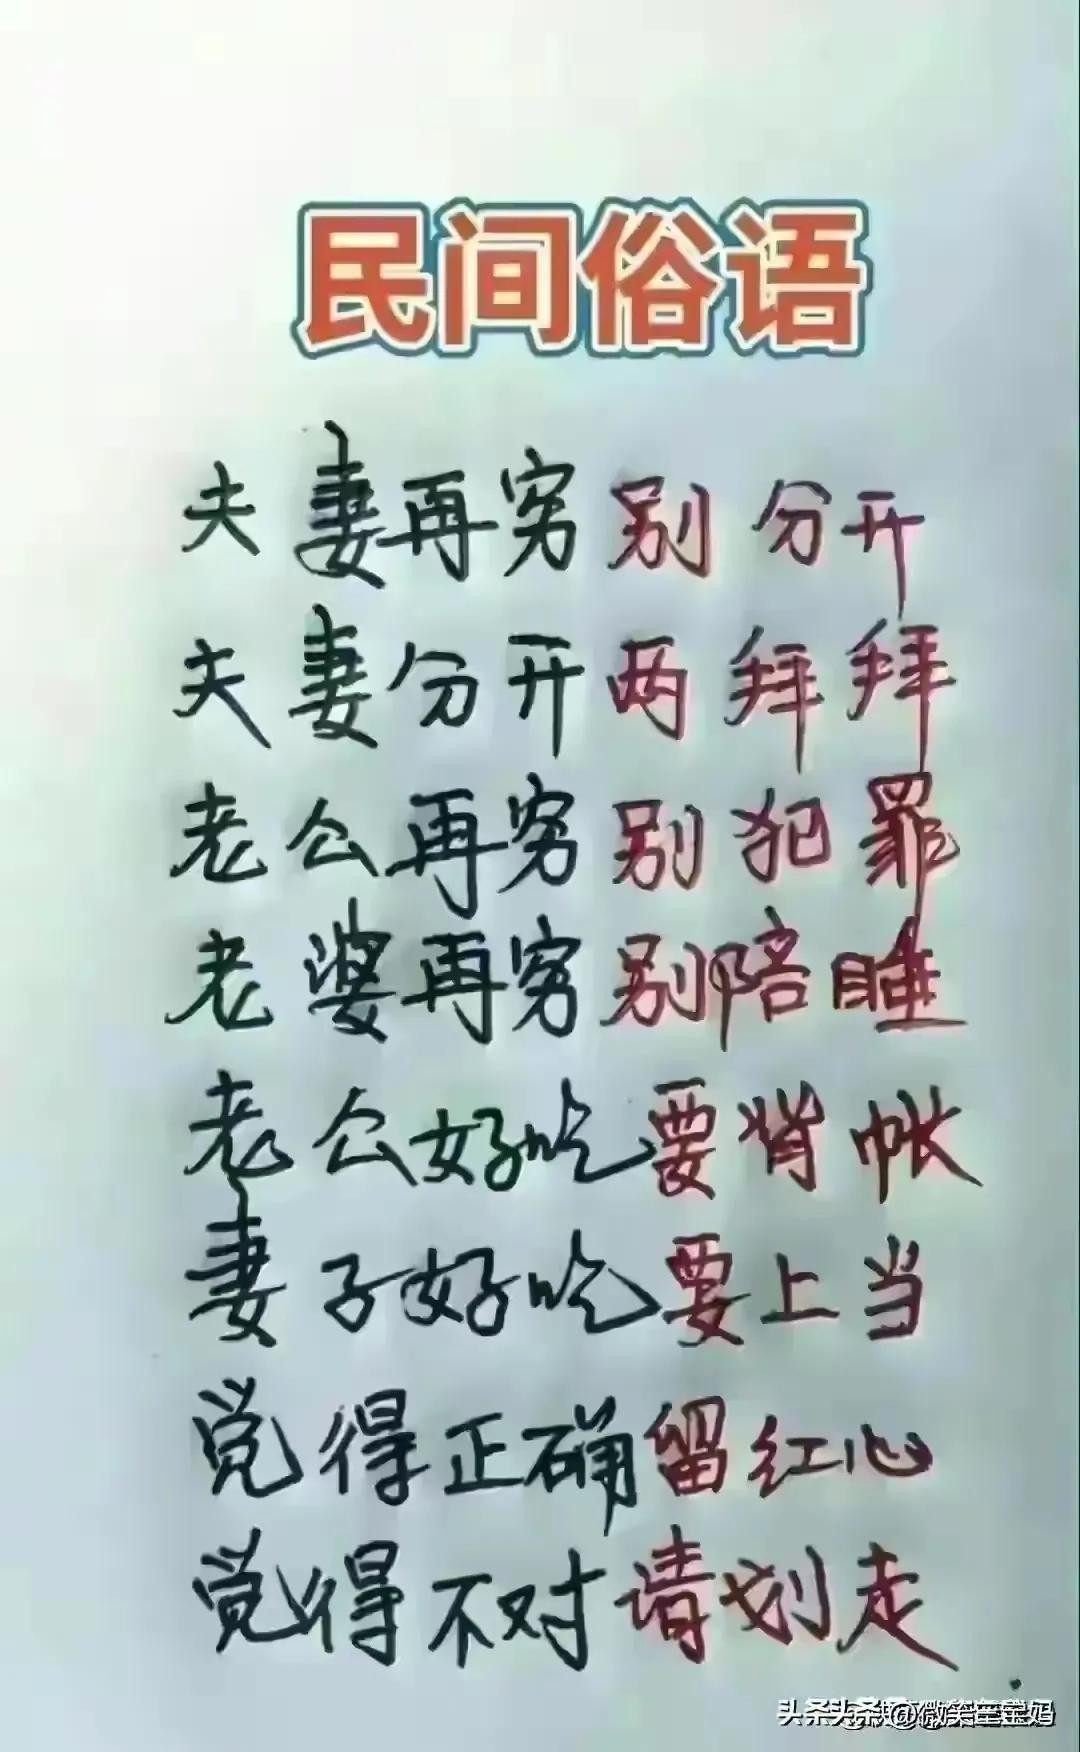 民间俗语
夫妻再穷别分开
夫妻分开两拜拜
老公再穷别犯罪
老婆再穷别陪睡
老公好吃要背帐
妻子好吃要上当
觉得正确留红心
觉得不对请划走
头条 @微笑三宝妈